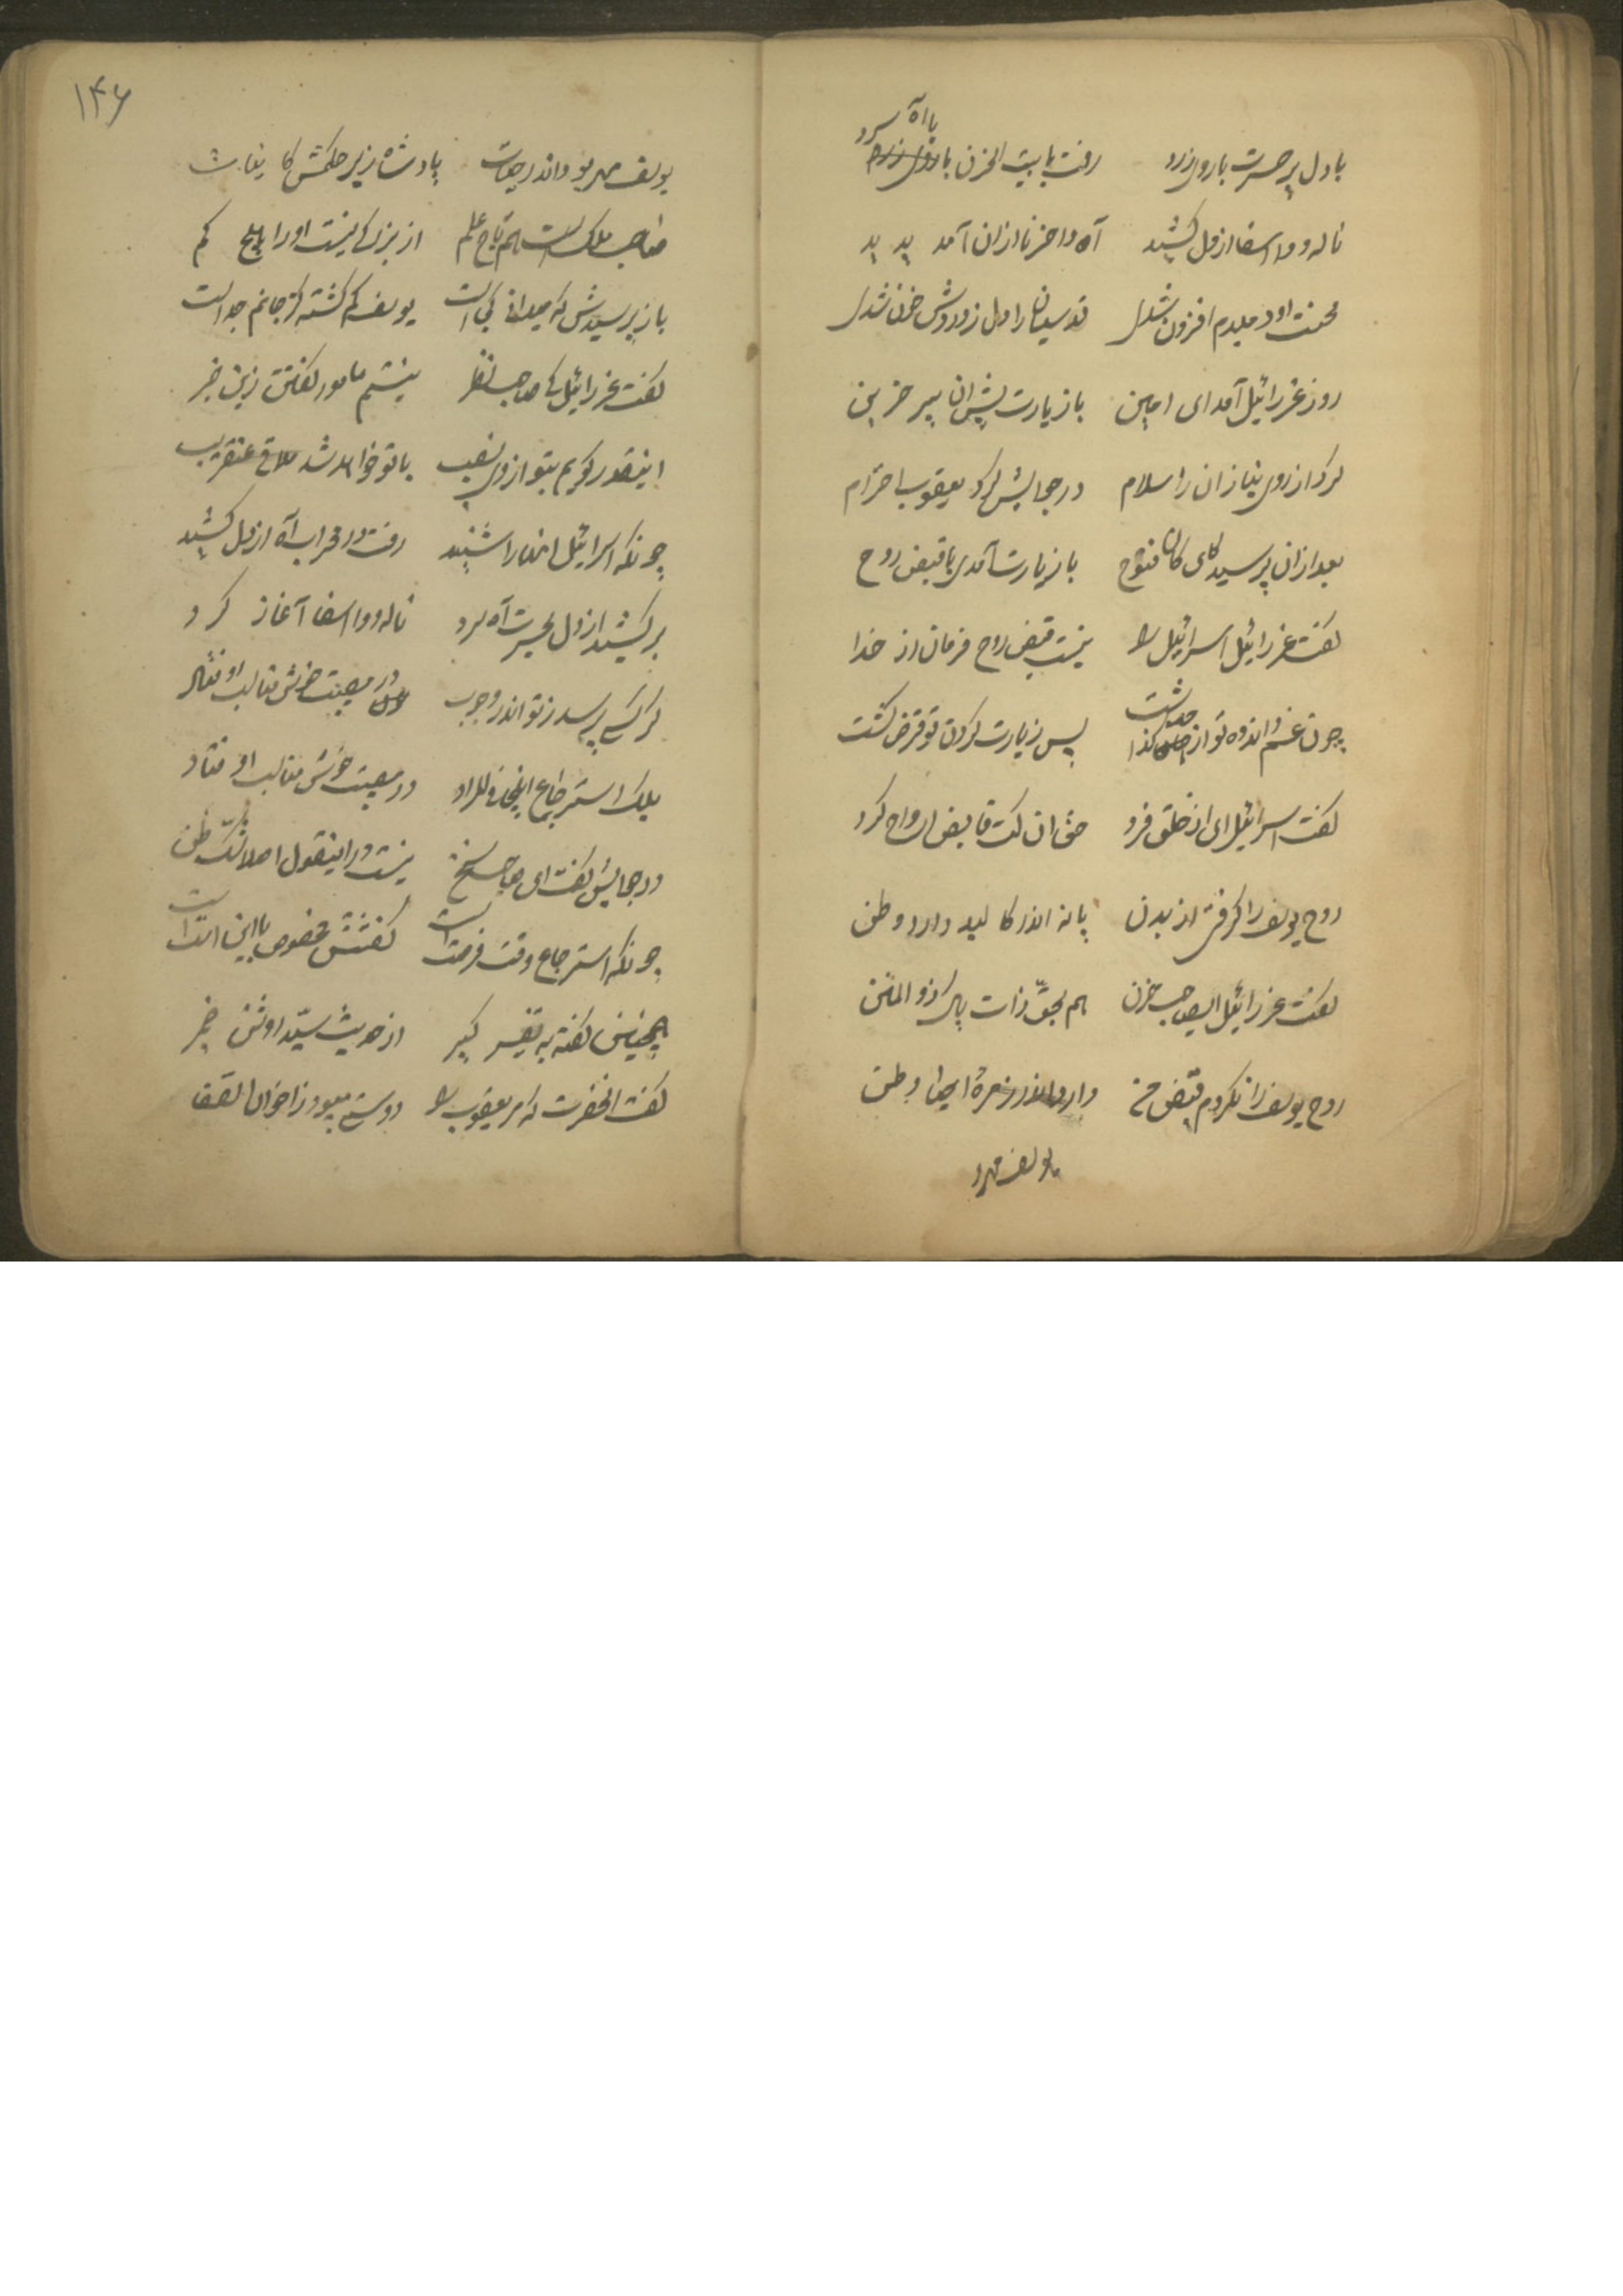 بادل پر حسرت با روی زرد رفت با بیت الحزن با روی زرد با آه سرد
ناله و وا اسفا از دل کشید آه واحزنا ازان آمد پدید
محنت او دمبدم افزون شدی قدسیانرا دل ز دردش خون شدی
روز عزرائیل آمد ای امین با زیارت پیش ان پیر حزین
کرد از روی نیاز ان را سلام در جوابش کرد یعقوب احترام
بعد ازان پرسید کای کان فتوح با زیارت آمدی یا قبض روح
گفت عزرائیل اسرائیل را نیست قبض روح فرمان از خدا
چون غم و اندوه تو از حد گذشت پس زیارت کردن تو فرض گشت
گفت اسرائیل ای از خلق فرد حق ان کت قابض ارواح کرد
روح یوسف را گرفتی از بدن یا نه اندر کالبد دارد وطن
گفت عزرائیل ایصاحب حزن هم بحق ذات پاک ذو المنن
روح یوسف را نکردم قبض من دارد اندر زمرهٔ احیا وطن
یوسف مهرو
۱۴۶
یوسف مهرو بود اندر حیات پادشاه زیر حکمش کاینات
صاحب ملک است هم تاج علم از بزرگی نیست اورا هیچ کم
باز پرسیدش که میدانی کجاست یوسف گم گشته کز جانم جداست
گفت عزرائیل کای صاحب نظر نیستم مامور گفتن زین خبر
اینقدر گویم بتو از روی نصیب با تو خواهد شد ملاقی عنقریب
چونکه اسرائیل انها را شنید رفت در محراب آه از دل کشید
بر کشید از دل بحسرت آه سرد ناله و وا اسفا آغاز کرد
گر کسی پرسد ز تو اندر وجوب در مصیبت خوش مناسب اوفتاد
بلکه استرجاع اینجا در مصیبت خوش مناسب اوفتاد
در جوابش گفت ای صاحب سخن نیست در اینقول اصلا شک و ظن
چونکه استرجاع وقت فرقت است گفتنش مخصوص با این امت است
همچنین گفته به تفسیر کبیر از حدیث سید او شن خبر
گفت انحضرت که مر یعقوب را دوستی میبود ز اخوان الصفا